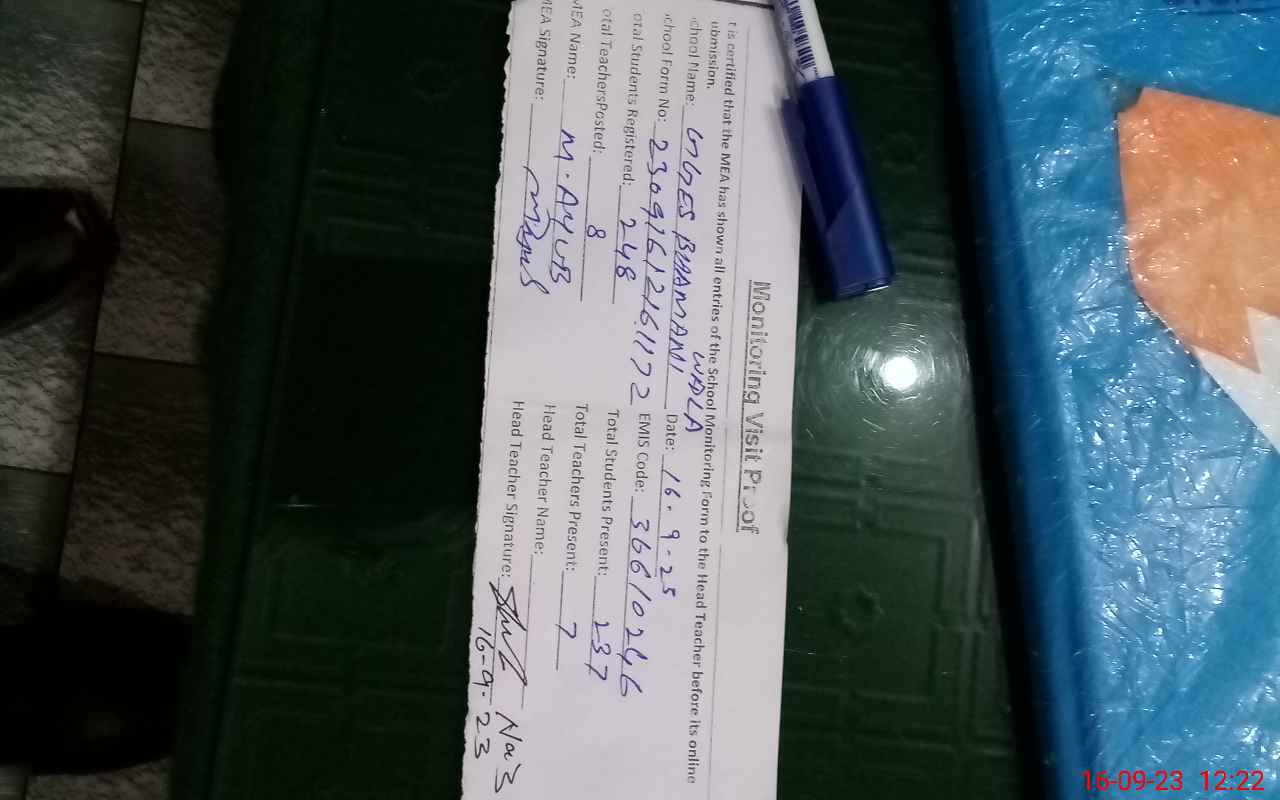 Monitoring Visit Proof
t is certified that the MEA has shown all entries of the School Monitoring Form to the Head Teacher before its online
ubmission.
chool Name: GGES BHAMANI WALA Date: 16-9-25
chool Form No: 230916121611172 EMIS Code: 36610246
otal Students Registered: 248 Total Students Present: 237
otal TeachersPosted: 8 Total Teachers Present: 7
MEA Name: M. AYUB Head Teacher Name:
MEA Signature: Head Teacher Signature:
16-9-23
16-09-23 12:22